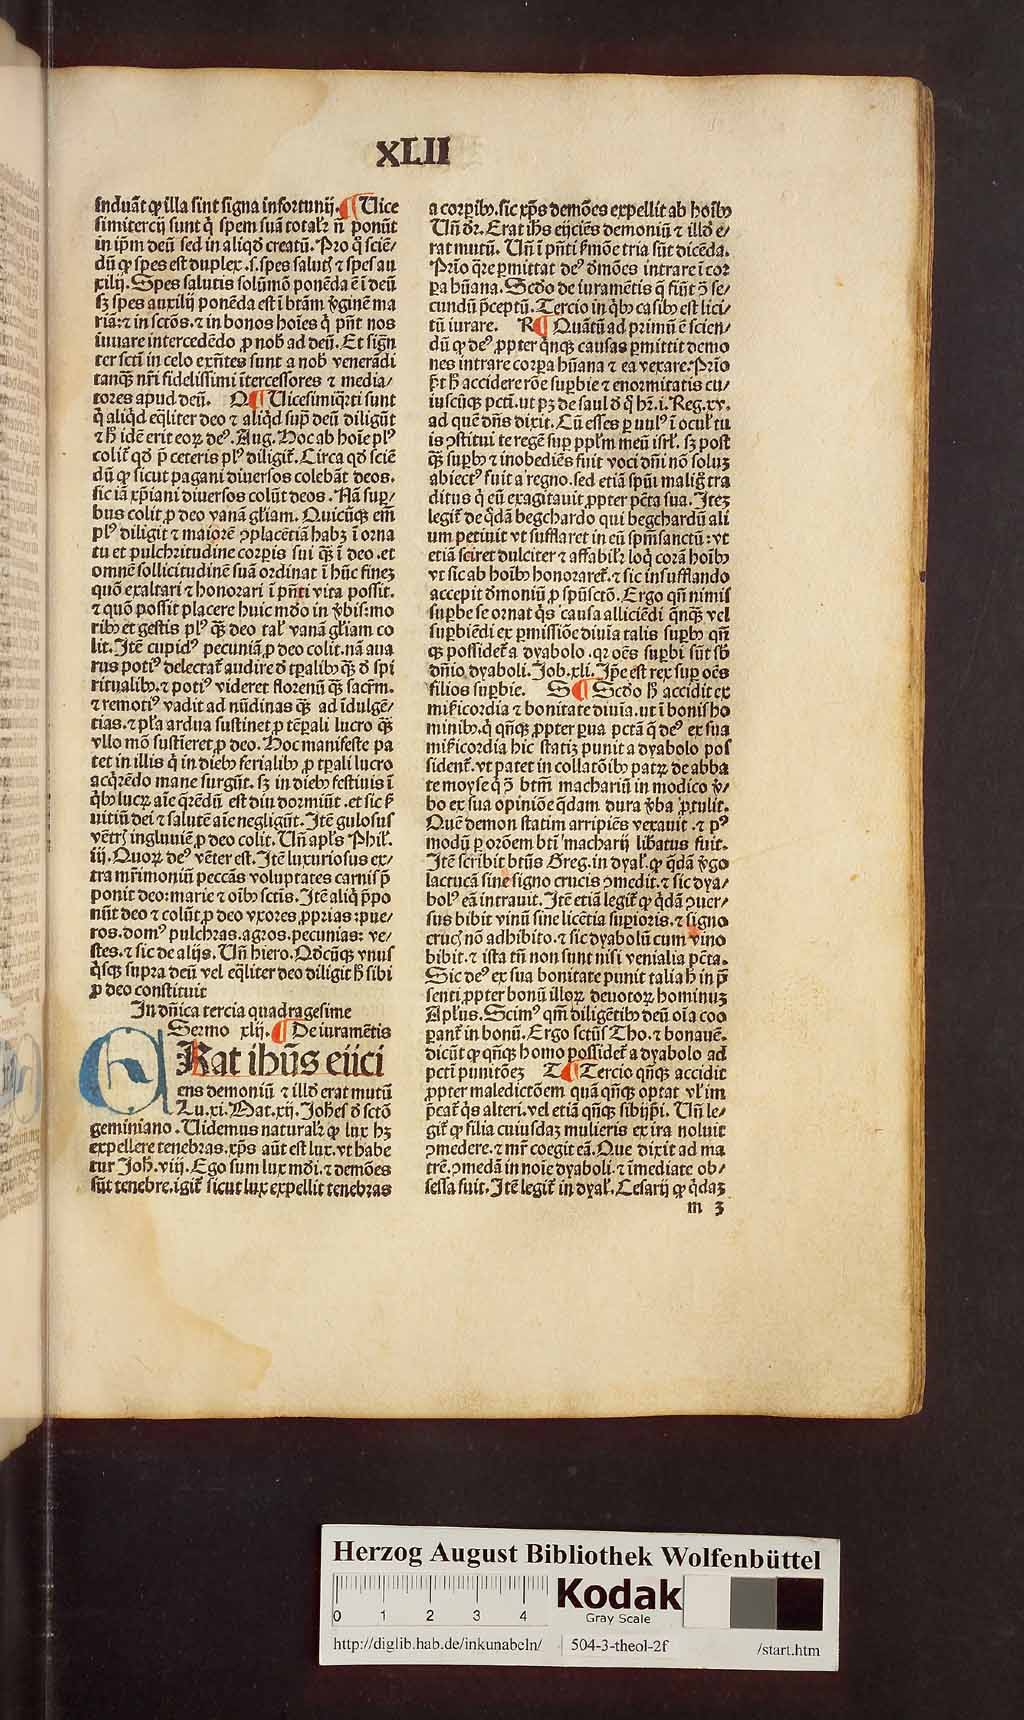 XLII
induāt ꝙ illa sint signa infortunij. ¶ Vice
simitercij sunt q̇ spem suā totalr̄ n̄ ponūt
in ip̄m deū sed in aliqd̕ creatū. Pro q̇ sciē/
dū ꝙ spes est duplex .s. spes salutꝭ ⁊ spes au
xilij. Spes salutis solūmō ponēda ē ī deū
sꝫ spes auxilij ponēda est ī btām v̕ginē ma
riā: ⁊ in sctōs. ⁊ in bonos hoīes q̇ pn̄t nos
iuuare intercedēdo ꝓ nob̕ ad deū. Et sig̕n
ter sctī in celo exn̄tes sunt a nob̕ venerādi
tanqꝫ nr̄i fidelissimi ītercessores ⁊ media/
tores apud deū. Q ¶ Vicesimiqr̄ti sunt
q̇ aliqd̕ eq̄liter deo ⁊ aliqd̕ sup̄ deū diligūt
⁊ h̕ idē erit eoꝝ de⁹. Aug. Hoc ab hoīe pl⁹
colit̄ qd̕ p̄ ceteris pl⁹ diligit̄. Circa qd̕ sciē
dū ꝙ sicut pagani diuersos colebāt deos.
sic iā xp̄iani diuersos colūt deos. Nā sup̄/
bus colit ꝓ deo vanā gl̄iam. Quicūqꝫ em̄
pl⁹ diligit ⁊ maiorē ꝯplacētiā habꝫ ī orna
tu et pulchritudine corpis sui qꝫ ī deo .et
omnē sollicitudinē suā ordinat ī hūc finez
quō exaltari ⁊ honorari ī pn̄ti vita possit.
⁊ quō possit placere huic mōo in v̕bis: mo
ribꝰ et gestis pl⁹ qꝫ deo tal̕ vanā gl̄iam co
lit. Itē cupid⁹ pecuniā ꝓ deo colit. nā aua
rus poti⁹ delectat̄ audire d̕ tp̄alibꝰ qꝫ d̕ spi
ritualibꝰ. ⁊ poti⁹ videret florenū qꝫ sacr̄m.
⁊ remoti⁹ vadit ad nūdinas qꝫ ad īdulgē/
tias. ⁊ pl̄a ardua sustinet ꝓ tēp̄ali lucro qꝫ
vllo mō sustieret ꝓ deo. Hoc manifeste pa
tet in illis q̇ in diebꝰ ferialibꝰ ꝓ tp̄ali lucro
acqr̄edo mane surgūt. sꝫ in diebꝰ festiuis ī
q̇bꝰ lucꝝ aīe qr̄edū est diu dormiūt .et sic k̕
uitiū dei ⁊ salutē aīe negligūt. Itē gulosus
vētrꝭ ingluuiē ꝓ deo colit. Vn̄ apl̄s Phil̕.
iij. Quoꝝ de⁹ vēter est. Itē luxuriosus ex/
tra mr̄imoniū peccās voluptates carnis p̄
ponit deo: marie ⁊ oībꝰ sctīs. Itē aliq̇ p̄po
nūt deo ⁊ colūt ꝓ deo vxores ꝓprias: pue/
ros. dom⁹ pulchras. agros. pecunias: ve/
stes. ⁊ sic de alijs. Vn̄ hiero. Qd̕cūqꝫ vnus
q̇sqꝫ supra deū vel eq̄liter deo diligit h̕ sibi
ꝓ deo constituit
In dn̄ica tercia quadragesime
Sermo xlij. ¶ De iuramētis
ERat ihūs eijci
ens demoniū ⁊ illd̕ erat mutū
Lu. xi. Mat. xij. Joh̕es d̕ sctō
geminiano. Videmus naturalr̄ ꝙ lux hꝫ
expellere tenebras. xp̄s aūt est lux. vt habe
tur Joh̕. viij. Ego sum lux mōi. ⁊ demōes
sūt tenebre. igit̄ sicut lux expellit tenebras
a corpibꝰ. sic xp̄s demōes expellit ab hoībꝰ
Vn̄ dr̄. Erat ihs eijciēs demoniū ⁊ illd̕ e/
rat mutū. Vn̄ ī pn̄ti k̕mōe tria sūt dicēda.
Prīo qr̄e p̱mittat de⁹ d̕mōes intrare ī cor
pa hūana. Scd̕o de iuramētis q̄ fiūt ꝯ se/
cundū p̄ceptū. Tercio in q̇bꝰ casibꝰ est lici/
tū iurare. R ¶ Quātū ad primū ē scien/
dū ꝙ de⁹ ꝓpter q̇nqꝫ causas p̱mittit demo
nes intrare corpa hūana ⁊ ea vexare. Prīo
p̄t h̕ accidere rōe sup̱bie ⁊ enormitatis cu/
iuscūqꝫ pctī. vt pꝫ de saul d̕ q̇ hr̄. i. Reg. xv.
ad quē dn̄s dixit. Cū esses p̱uul⁹ ī ocul̕ tu
is ꝯstitui te regē sup̱ pplm̄ meū isrl̕. sꝫ post
qꝫ sup̱b⁹ ⁊ inobediēs fuit voci dn̄i nō soluꝫ
abiect⁹ fuit a regno. sed etiā spūi malig̕ tra
ditus q̇ eū exagitauit ꝓpter pctā sua. Iteꝫ
legit̄ de q̇dā begchardo qui begchardū ali
um petiuit vt sufflaret in eū spm̄sanctū: vt
etiā sciret dulciter ⁊ affabilr̄ loq̇ corā hoībꝰ
vt sic ab hoībꝰ honoraret̄. ⁊ sic insufflando
accepit d̕moniū ꝓ spūsctō. Ergo qn̄ nimis
sup̱be se ornat q̇s causa alliciēdi q̇nqꝫ vel
sup̱biēdi ex p̱missiōe diuīa talis sup̱bꝰ qn̄
qꝫ possidet̄ a dyabolo. qꝛ oēs sup̱bi sūt sb̕
dn̄io dyaboli. Job. xli. Ip̄e est rex sup̱ oēs
filios sup̱bie. S ¶ Scd̕o h̕ accidit ex
mik̕icordia ⁊ bonitate diuīa. vt ī bonis ho
minibꝰ. q̇ qn̄qꝫ ꝓpter p̱ua pctā q̄ de⁹ ex sua
mik̕icordia hic statiꝫ punit a dyabolo pos
sident̄. vt patet in collatōibꝰ patꝝ de abba
te moyse q̇ ꝯ btm̄ machariū in modico v̕/
bo ex sua opiniōe q̇dam dura v̕ba ꝓtulit.
Quē demon statim arripiēs vexauit .⁊ p⁹
modū p̱ orōem btī macharij lib̕atus fuit.
Itē scribit btūs Greg. in dyal̕. ꝙ q̇dā v̕go
lactucā sine signo crucis ꝯmedit. ⁊ sic dya/
bol⁹ eā intrauit. Itē etiā legit̄ ꝙ q̇dā ꝯuer/
sus bibit vinū sine licētia sup̱ioris. ⁊ signo
crucꝭ nō adhibito. ⁊ sic dyabolū cum vino
bibit. ⁊ ista tn̄ non sunt nisi venialia pctā.
Sic de⁹ ex sua bonitate punit talia h̕ in p̄
senti ꝓpter bonū illoꝝ deuotoꝝ hominuꝫ
Apl̄us. Scim⁹ qm̄ diligētibꝰ deū oīa coo
p̱ant̄ in bonū. Ergo sctūs Tho. ⁊ bonauē.
dicūt ꝙ qn̄qꝫ homo possidet̄ a dyabolo ad
pctī punitōeꝫ T ¶ Tercio qn̄qꝫ accidit
ꝓpter maledictōem quā qn̄qꝫ optat vl̕ im
p̄cat̄ q̇s alteri. vel etiā qn̄qꝫ sibijpī. Vn̄ le/
git̄ ꝙ filia cuiusdaꝫ mulieris ex ira noluit
ꝯmedere. ⁊ mr̄ coegit eā. Que dixit ad ma
trē. ꝯmedā in noīe dyaboli. ⁊ īmediate ob/
sessa fuit. Itē legit̄ in dyal̕. Cesarij ꝙ q̇daꝫ
m 3
Herzog August Bibliothek Wolfenbüttel
0 1 2 3 4
Kodak
Gray Scale
http://diglib.hab.de/inkunabeln/ 504-3-theol-2f /start.htm